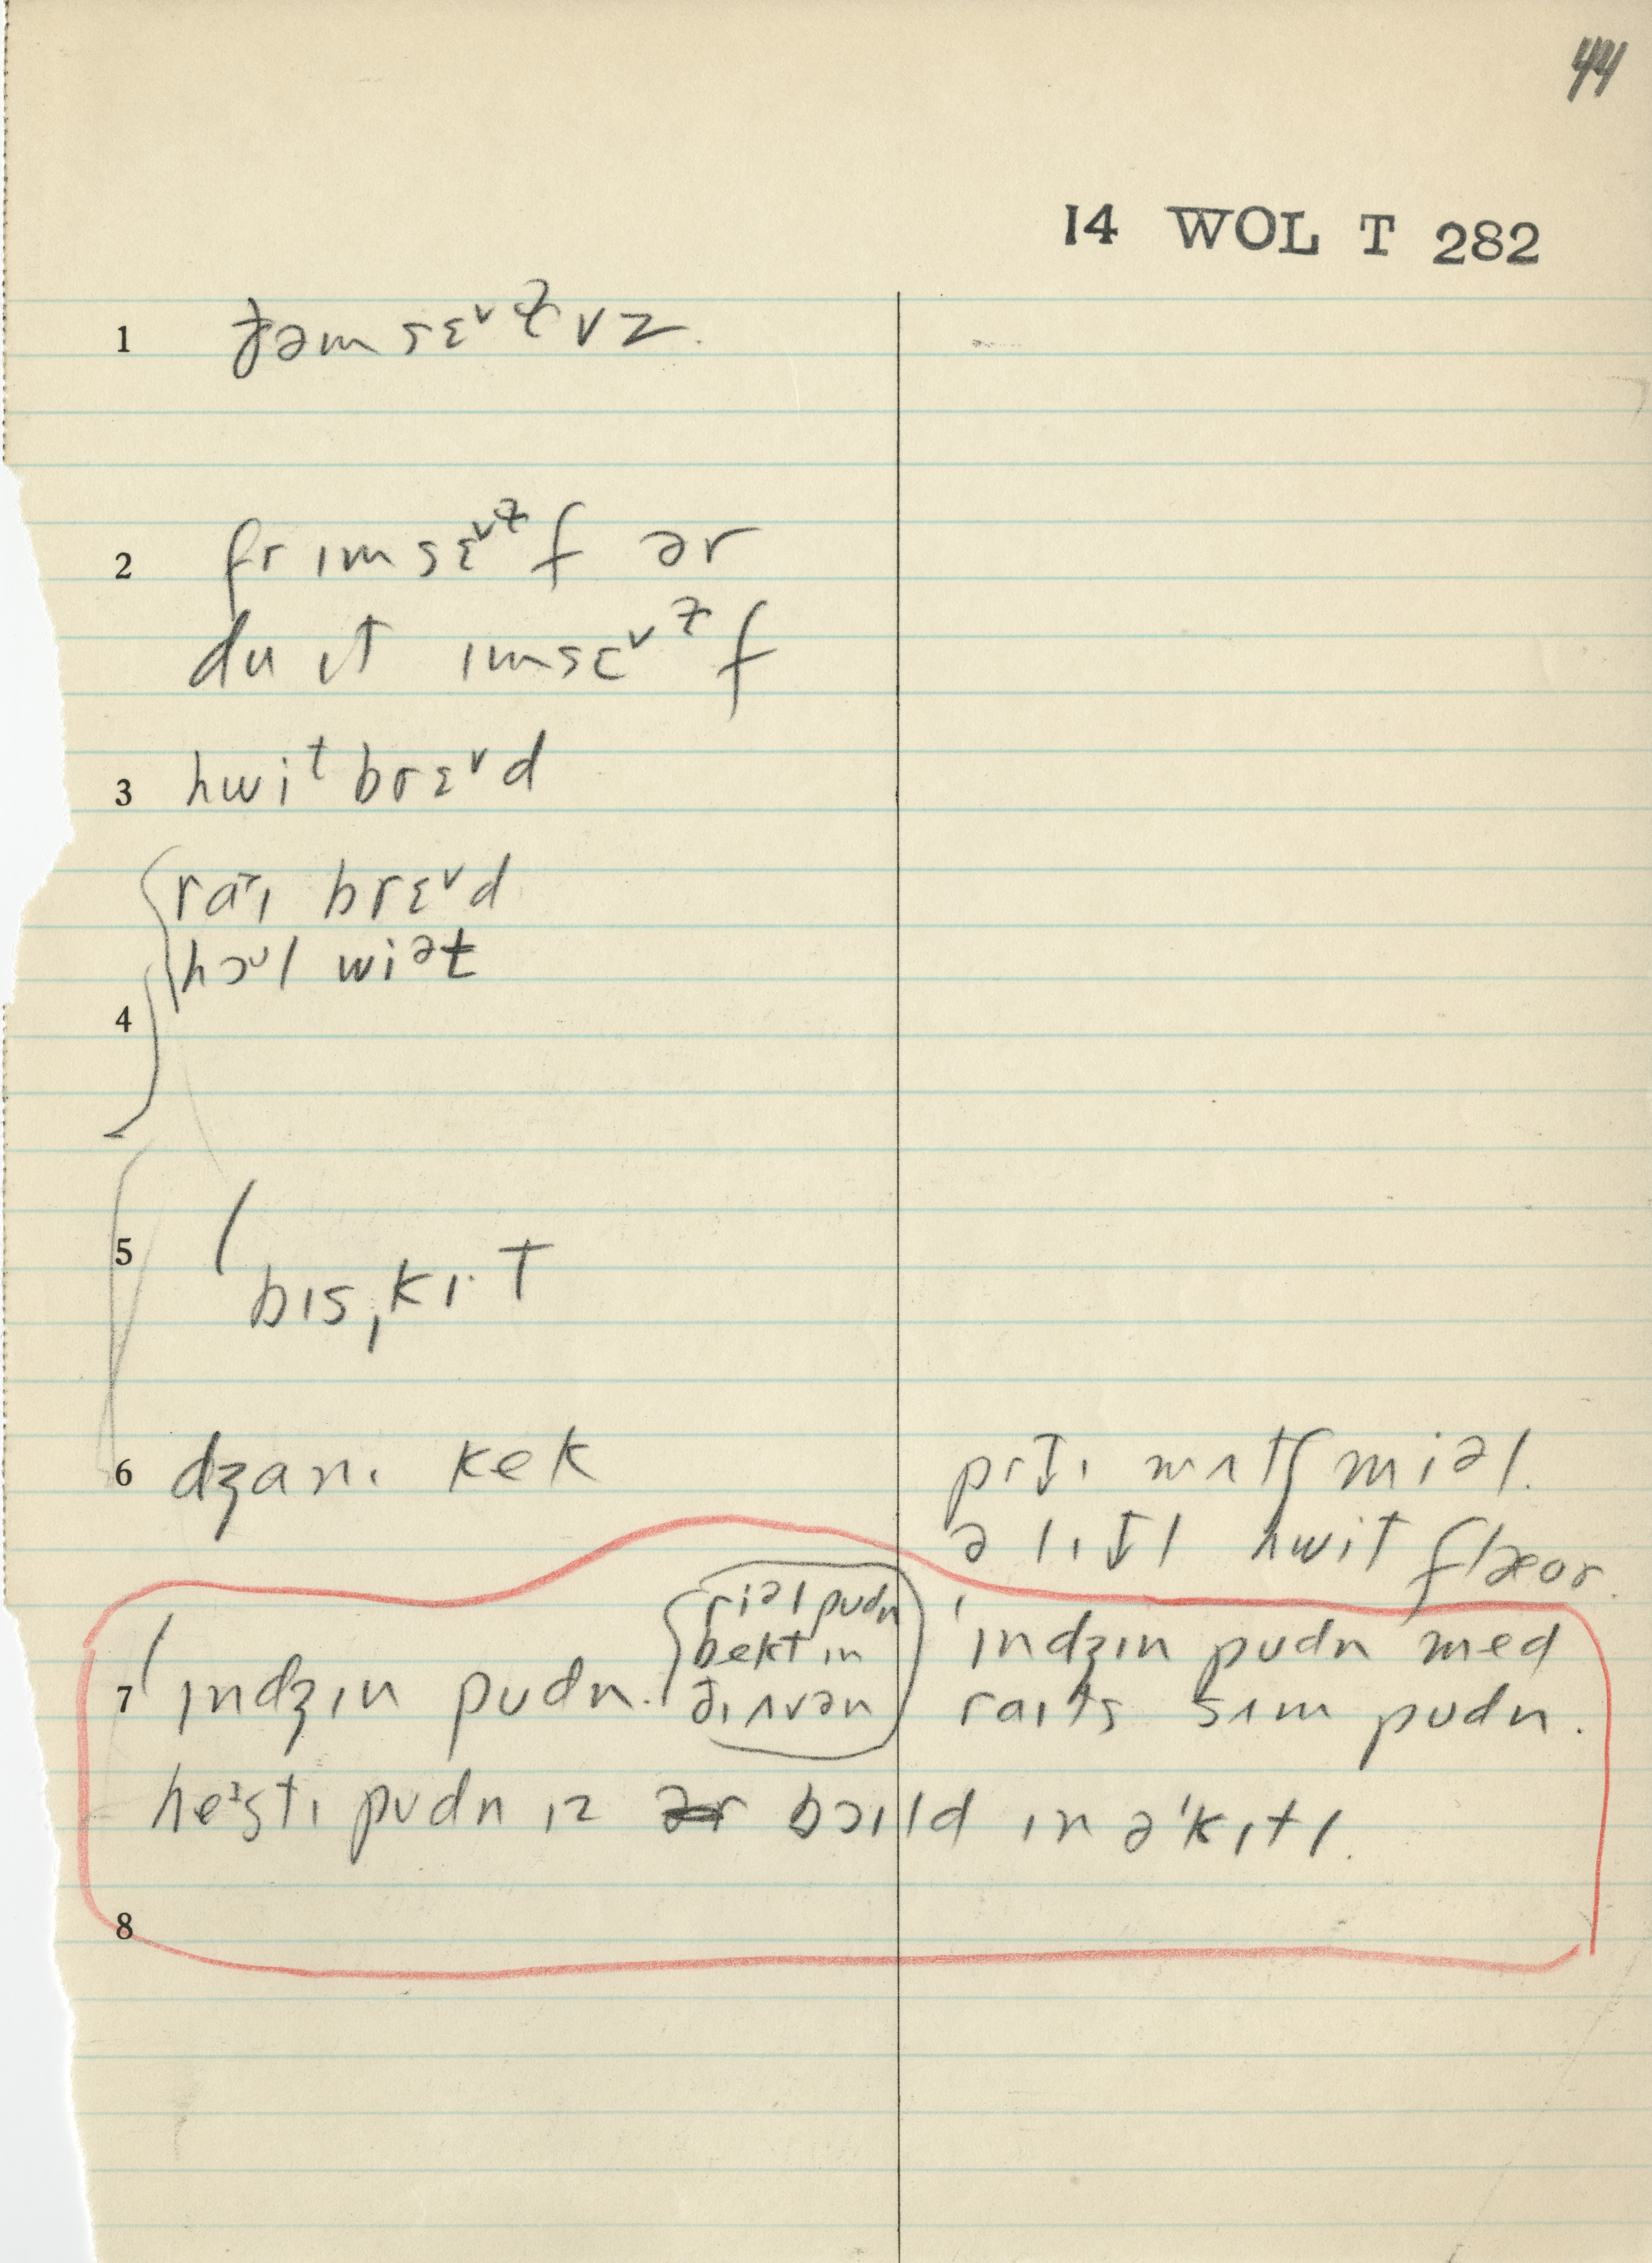 44
14 WOL T 282
1 ðəmsɛᵛɫvz.
2 fr ɪmsɛᵛɫf ər
du ɪt ɪmsɛᵛɫf
3 hwiᵗbrɛᵛd
4 raɪ brɛᵛd
hɔᵘl wiᵊt
5 ˈbɪsˌkɪt
6 dʒanɪ kek
prɪtɪ mʌtʃ miəl.
ə lɪtl hwit flæor.
7 ˈɪndʒɪn pudn.
riəl pudn
bekt in
ðɪ ʌvən
ˈɪndʒɪn pudn med
raɪts sʌm pudn.
heᶦstɪ pudn ɪz bɔɪld ɪn ə ˈkɪtl.
8